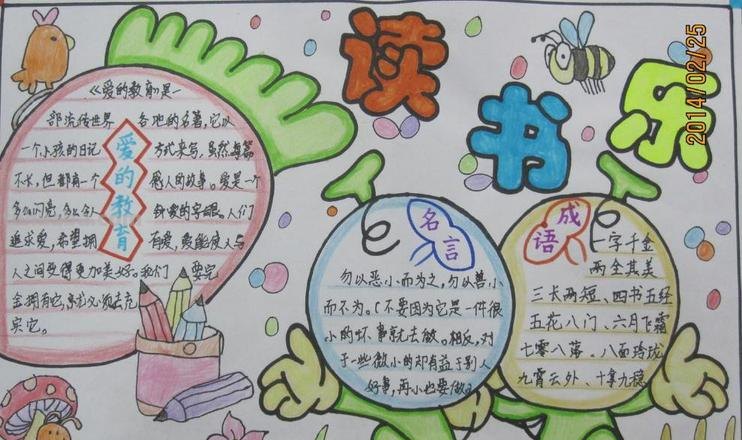 读书乐
2014/02/25
《爱的教育》是一
部流传世界 各地的名著,它以
一个小孩的日记 方式来写,虽然每篇
不长,但都有一个 感人的故事。爱是一个
多么闪亮,多么令人 钟爱的字眼。人们
追求爱,希望拥 有爱,爱能使人与
人之间变得更加美好。我们 要完
全拥有它,就必须去充
实它。
爱的教育
名言
勿以恶小而为之,勿以善小
而不为。(不要因为它是一件很
小的坏事就去做。相反,对
于一些微小的却有益于别人
好事,再小也要做。)
成语
一字千金
两全其美
三长两短、四书五经
五花八门、六月飞霜
七零八落、八面玲珑
九霄云外、十拿九稳